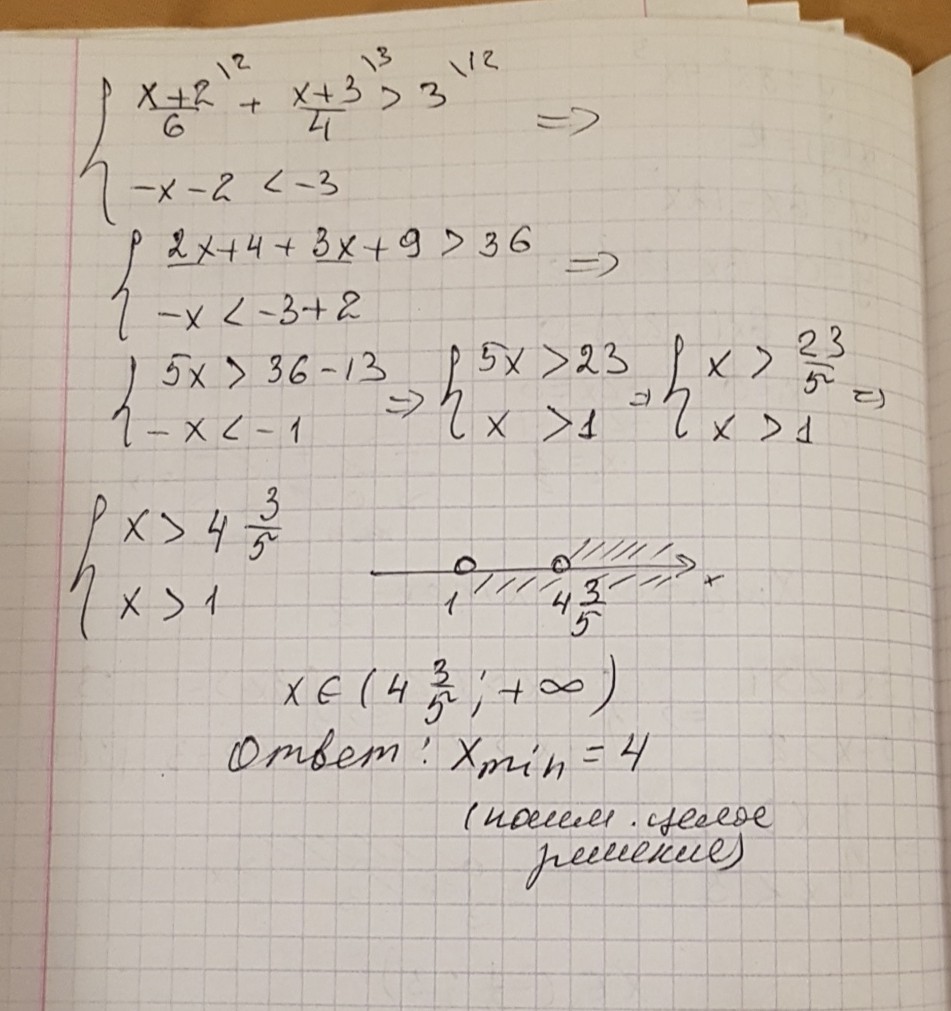 { (x+2)/6 \2 + (x+3)/4 \3 > 3 \12 =>
-x-2 < -3
{ 2x+4+3x+9 > 36 =>
-x < -3+2
{ 5x > 36-13 => { 5x > 23 => { x > 23/5 =>
-x < -1 x > 1 x > 1
{ x > 4 3/5
x > 1
1 4 3/5 x
x ∈ (4 3/5; +∞)
Ответ: x min = 4
(наим. целое
решение)